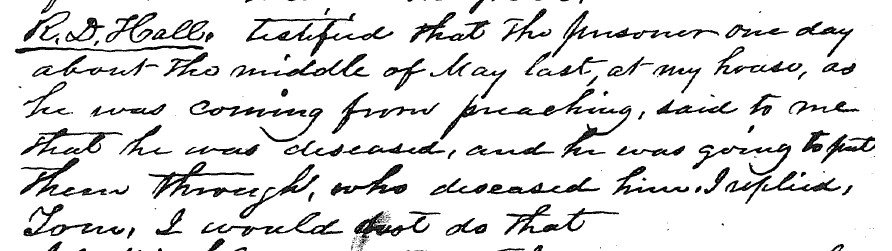 R. D. Hall. testified that the prisoner one day
about the middle of May last, at my house, as
he was coming from preaching, said to me
that he was diseased, and he was going to put
them through, who diseased him. I replied,
Tom, I would not do that